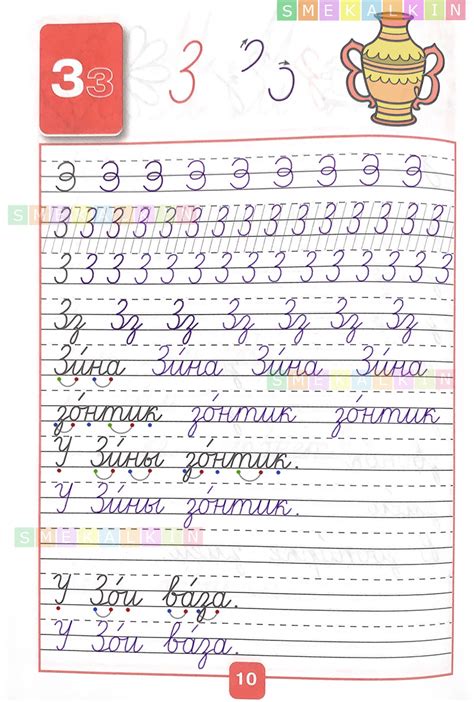 SMEKALKIN
З з З З
З З З З З З З З З
SMEKALKIN
З З З З З З З З З З З З З З З З
З З З З З З З З З З З З З З З
Зз Зз Зз Зз Зз Зз Зз
Зи́на Зи́на Зи́на Зи́на
SMEKALKIN
зо́нтик зо́нтик зо́нтик
У Зи́ны зо́нтик.
У Зи́ны зо́нтик.
SMEKALKIN
У Зо́и ва́за.
У Зо́и ва́за.
10